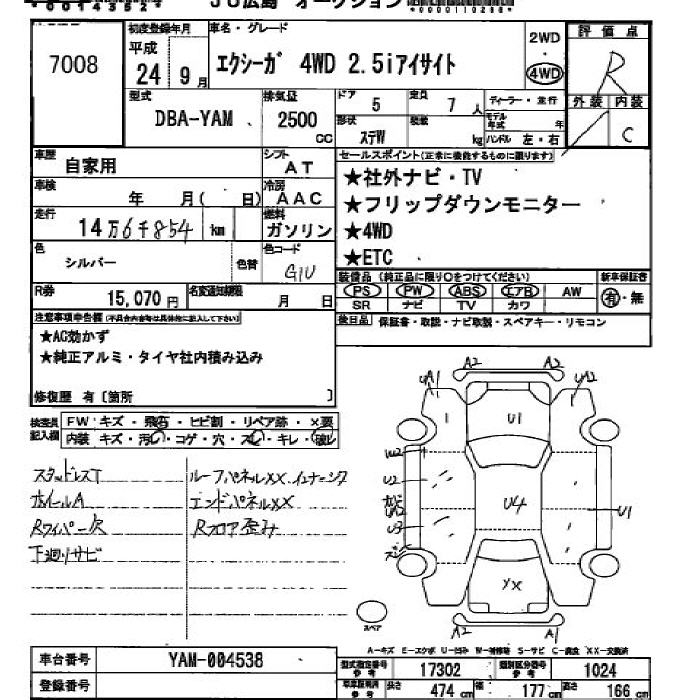 JU広島 オークション
7008
初度登録年月
平成
24 9月
車名・グレード
エクシーガ 4WD 2.5iアイサイト
2WD
4WD
評価点
R
外装 内装
C
型式
DBA-YAM
排気量
2500 cc
ドア 5
定員 7人
ディーラー・並行
形状 ステW
積載 kg
モデル年式 年
ハンドル 左・右
車歴
自家用
シフト
AT
車検
年 月( 日)
冷房
AAC
走行
14万6千854 km
燃料
ガソリン
色
シルバー
色替
色コード
G1U
R券
15,070円
名変通知期限
月 日
セールスポイント(正常に機能するものに限ります)
★社外ナビ・TV
★フリップダウンモニター
★4WD
★ETC
装備品(純正品に限り○をつけてください)
新車保証書
PS PW ABS エアB AW
SR ナビ TV カワ
有・無
後日品 保証書・取説・ナビ取説・スペアキー・リモコン
注意事項申告欄(不具合内容等は具体的に記入して下さい)
★AC効かず
★純正アルミ・タイヤ社内積み込み
修復歴 有〔箇所 〕
検査員記入欄
FW キズ・飛石・ヒビ割・リペア跡・×要
内装 キズ・汚れ・コゲ・穴・スレ・キレ・破レ
スタッドレスT
ホイールA
Rワイパー欠
下廻りサビ
ルーフパネルXX.インナーシワ
エンドパネルXX
Rフロア歪み
A2 A2
UA1 UA2
1 U1
UU2
U2
U4
U1
U3
XX
A2 A1
スペア
A-キズ E-エクボ U-凹み W-補修跡 S-サビ C-腐食 XX-交換済
車台番号
YAM-004538
登録番号
型式指定番号 参考
17302
類別区分番号 参考
1024
長さ 474 cm
幅 177 cm
高さ 166 cm